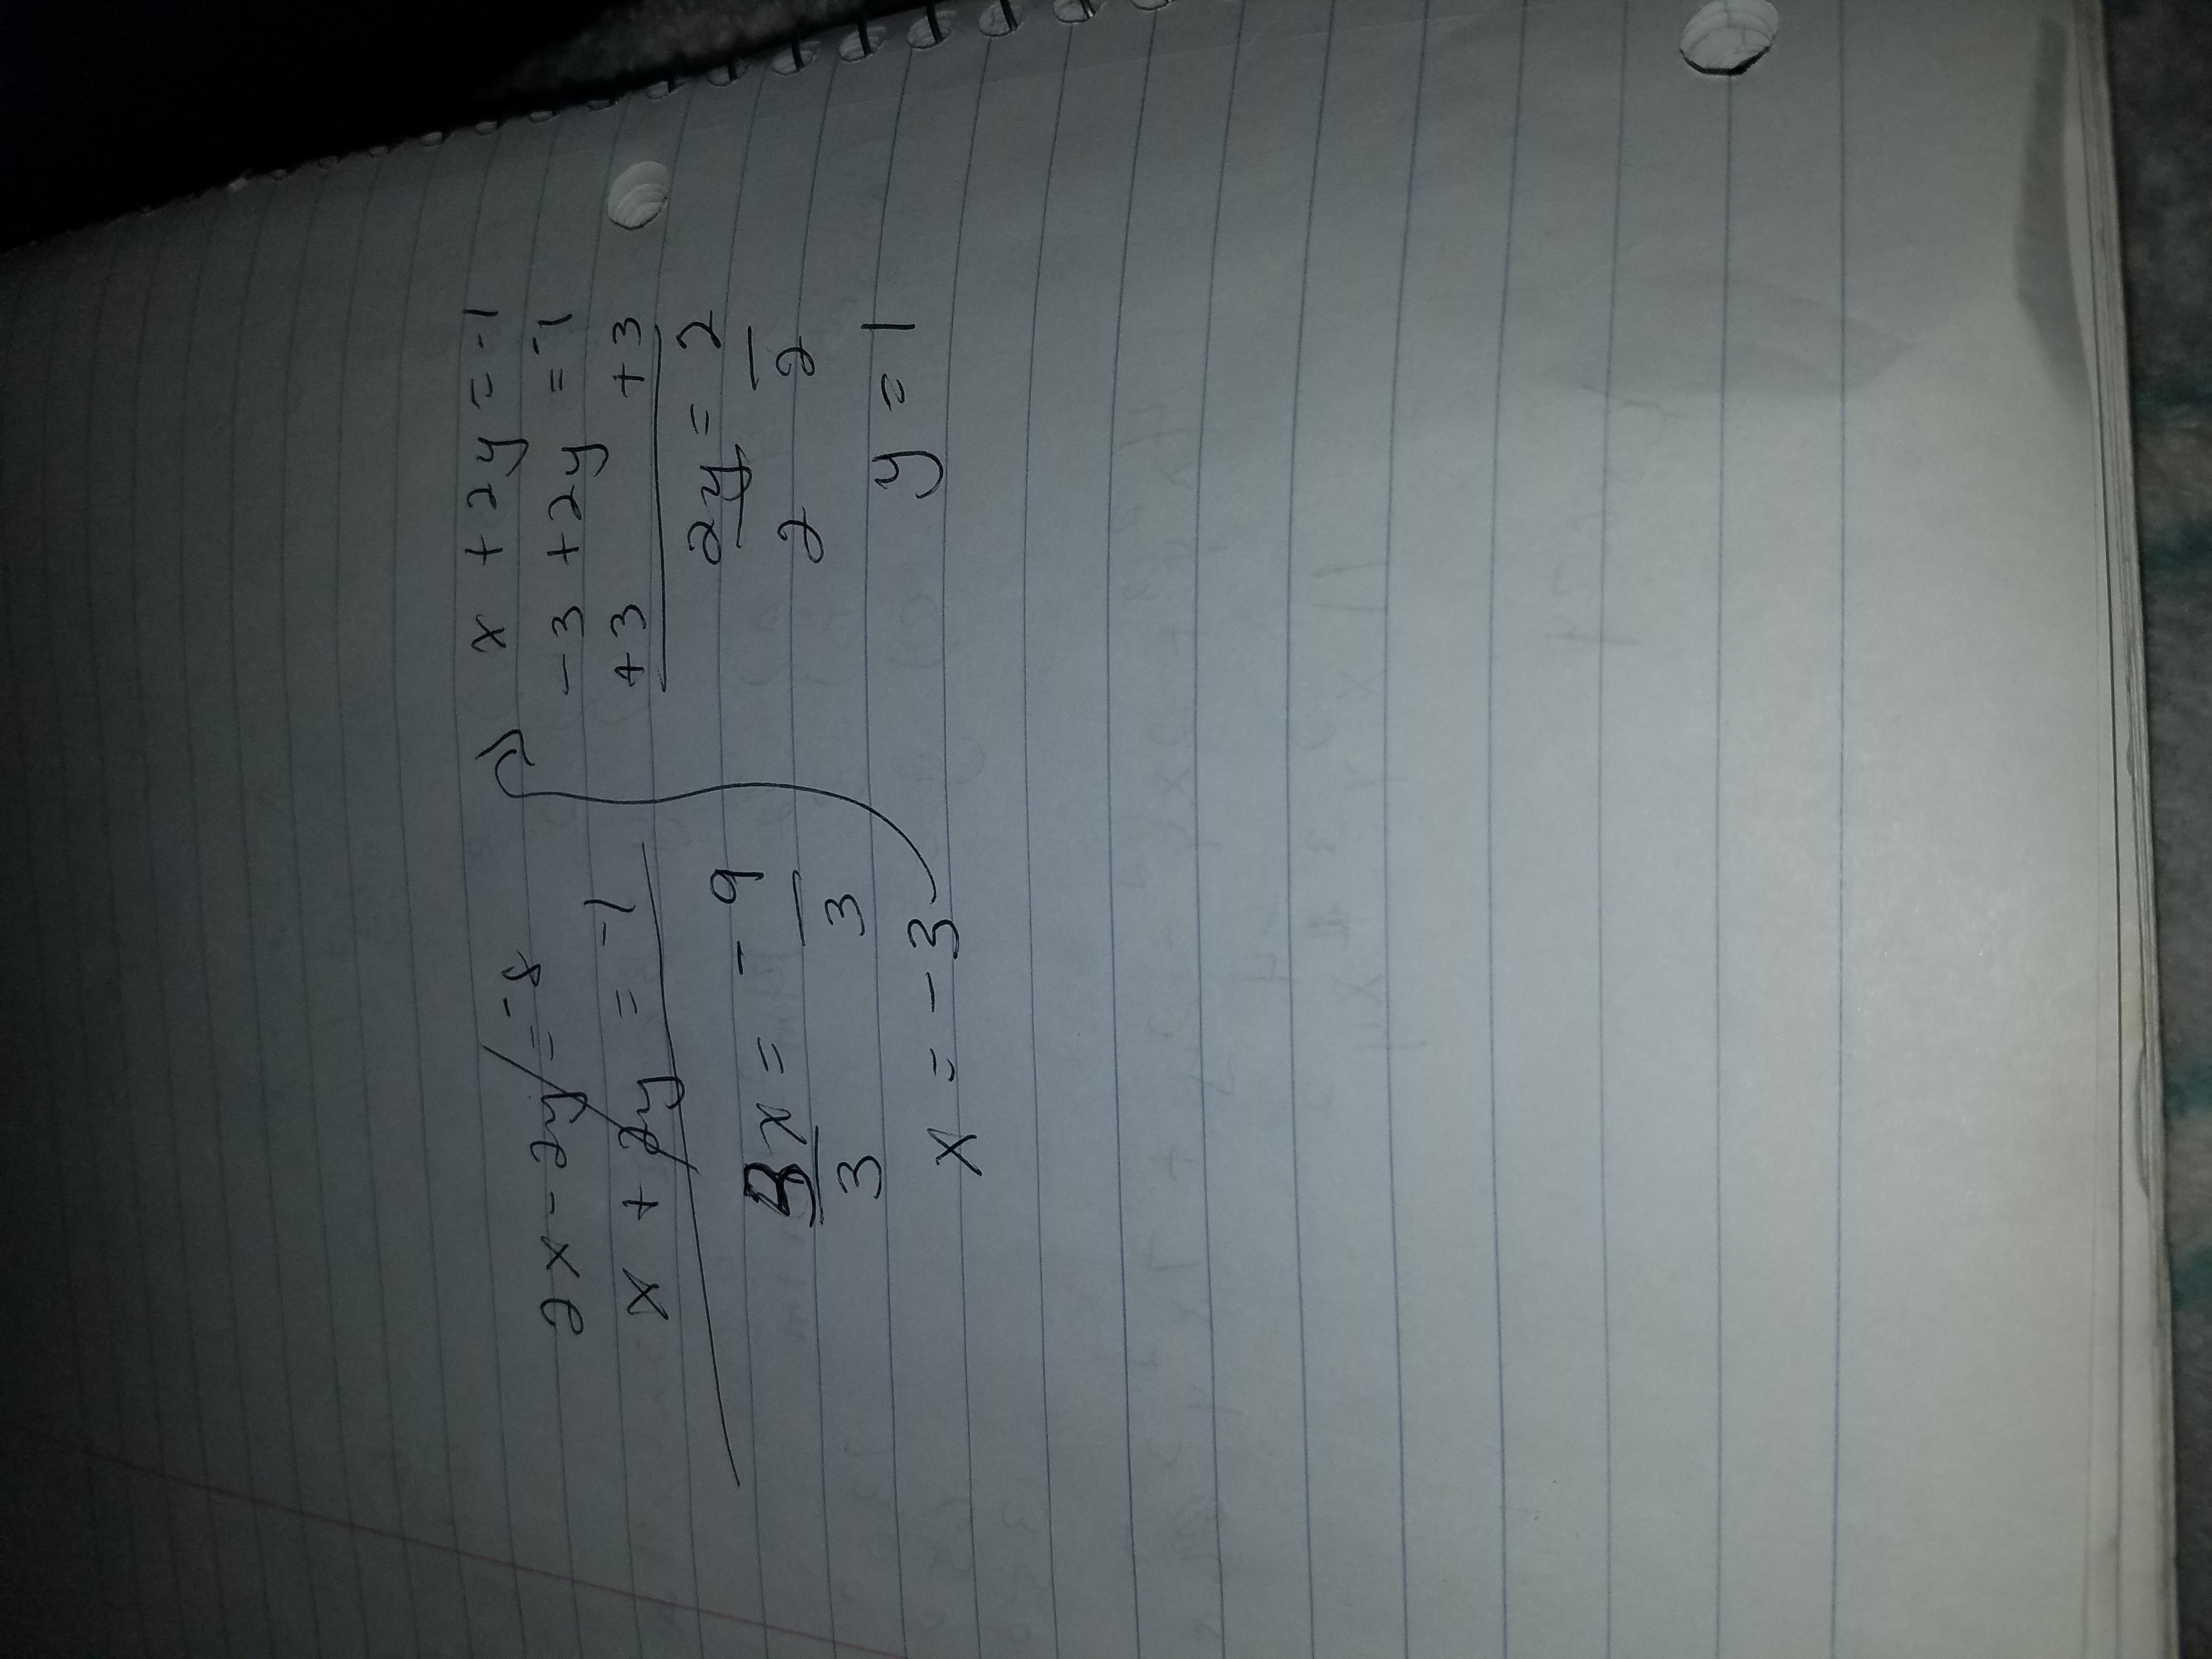 2x - 2y = -8
x + 2y = -1
3x = -9
3 3
x = -3
x + 2y = -1
-3 + 2y = -1
+3 +3
2y = 2
2 2
y = 1